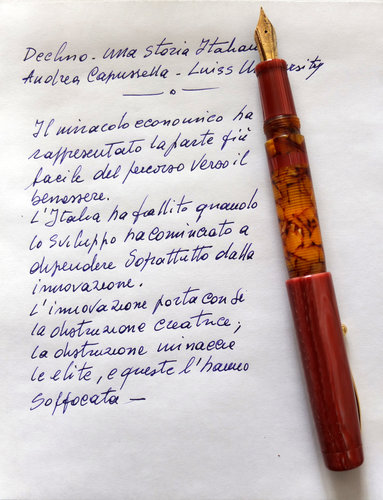 Declino - una storia Italiana
Andrea Capussella - Luiss University
Il miracolo economico ha
rappresentato la parte più
facile del percorso verso il
benessere.
L'Italia ha fallito quando
lo sviluppo ha cominciato a
dipendere soprattutto dalla
innovazione.
L'innovazione porta con se
la distruzione creatrice;
la distruzione minaccia
le elite, e queste l'hanno
soffocata —